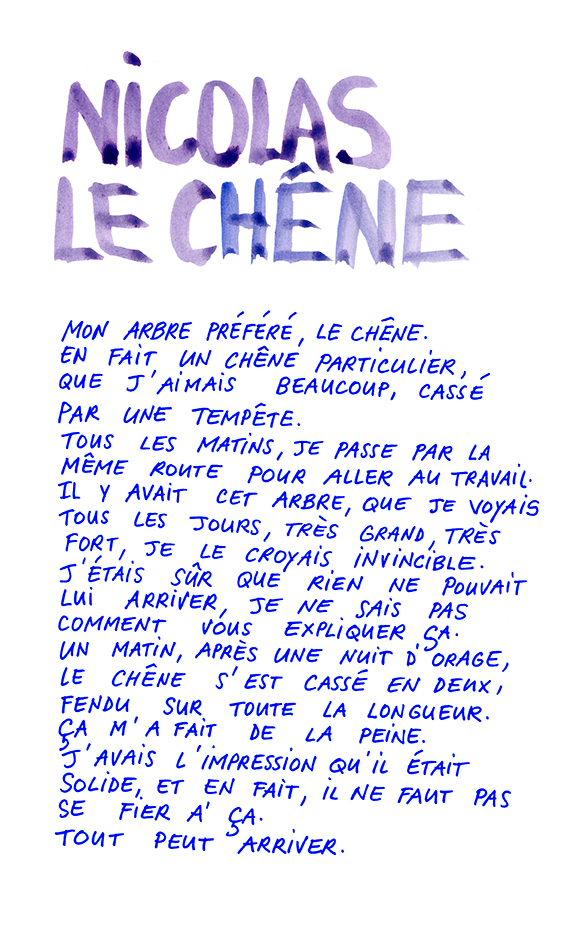 NICOLAS
LE CHÊNE
MON ARBRE PRÉFÉRÉ, LE CHÊNE.
EN FAIT UN CHÊNE PARTICULIER,
QUE J'AIMAIS BEAUCOUP, CASSÉ
PAR UNE TEMPÊTE.
TOUS LES MATINS, JE PASSE PAR LA
MÊME ROUTE POUR ALLER AU TRAVAIL.
IL Y AVAIT CET ARBRE, QUE JE VOYAIS
TOUS LES JOURS, TRÈS GRAND, TRÈS
FORT, JE LE CROYAIS INVINCIBLE.
J'ÉTAIS SÛR QUE RIEN NE POUVAIT
LUI ARRIVER, JE NE SAIS PAS
COMMENT VOUS EXPLIQUER ÇA.
UN MATIN, APRÈS UNE NUIT D'ORAGE,
LE CHÊNE S'EST CASSÉ EN DEUX,
FENDU SUR TOUTE LA LONGUEUR.
ÇA M'A FAIT DE LA PEINE.
J'AVAIS L'IMPRESSION QU'IL ÉTAIT
SOLIDE, ET EN FAIT, IL NE FAUT PAS
SE FIER A' ÇA.
TOUT PEUT ARRIVER.